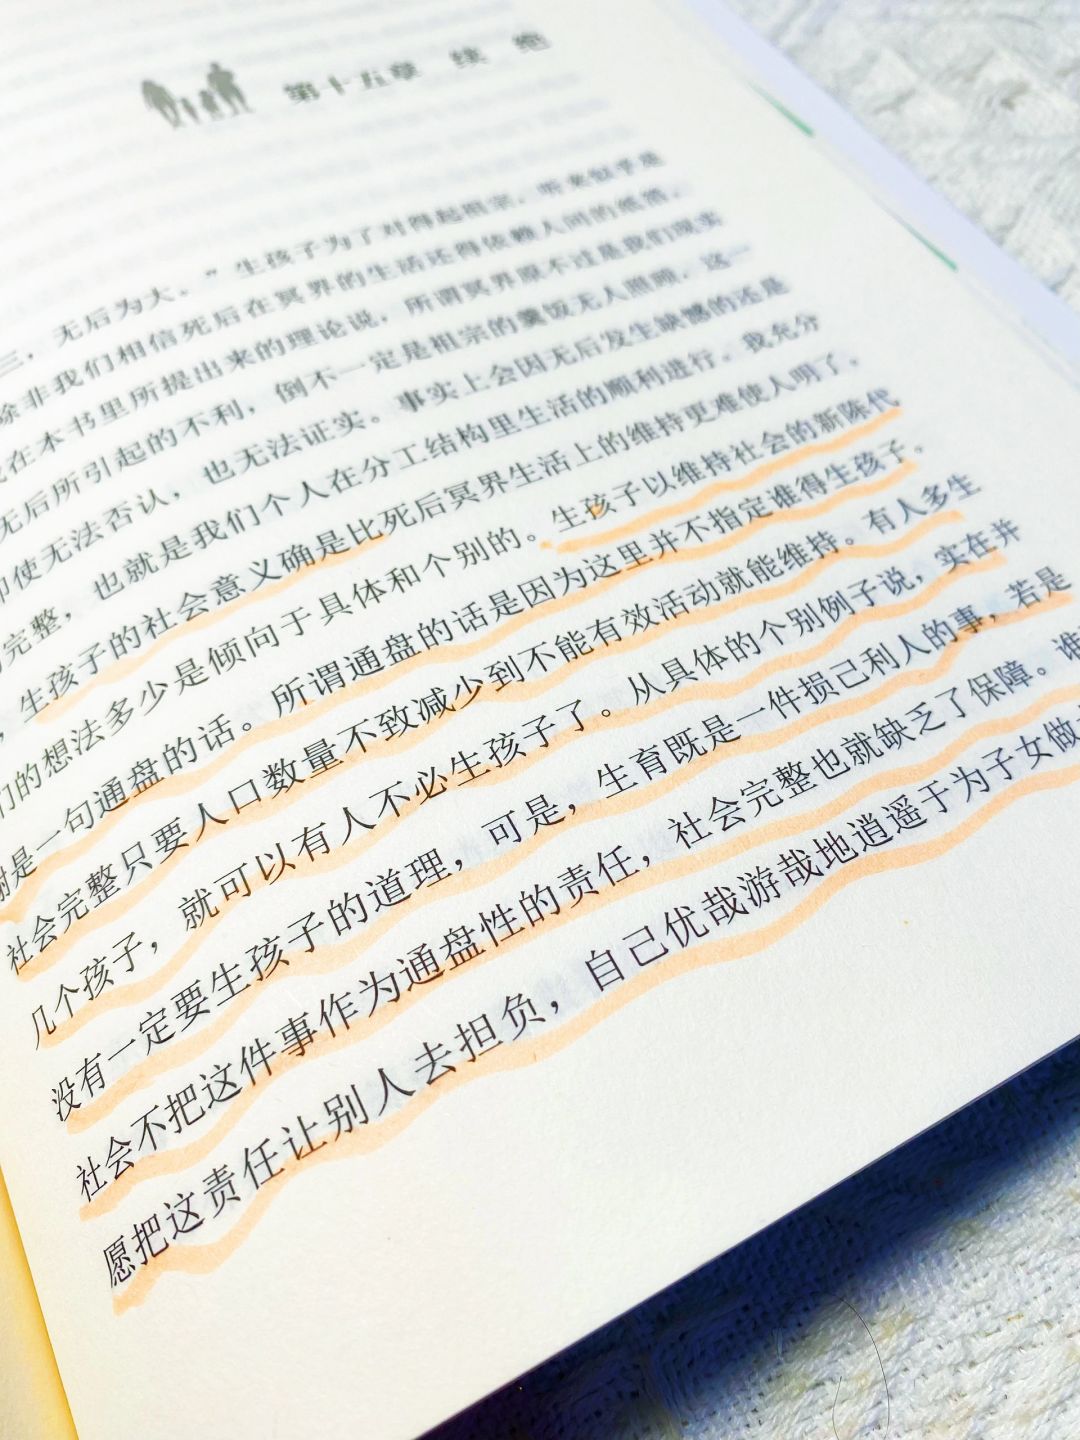 第十五章 续 绝
三，无后为大。”生孩子为了对得起祖宗，听来似乎是
除非我们相信死后在冥界的生活还得依赖人间的纸箔，
在本书里所提出来的理论说，所谓冥界原不过是我们现实
无后所引起的不利，倒不一定是祖宗的羹饭无人照顾，这一
即使无法否认，也无法证实。事实上会因无后发生缺憾的还是
完整，也就是我们个人在分工结构里生活的顺利进行。我充分
，生孩子的社会意义确是比死后冥界生活上的维持更难使人明了，
们的想法多少是倾向于具体和个别的。生孩子以维持社会的新陈代
谢是一句通盘的话。所谓通盘的话是因为这里并不指定谁得生孩子。
社会完整只要人口数量不致减少到不能有效活动就能维持。有人多生
几个孩子，就可以有人不必生孩子了。从具体的个别例子说，实在并
没有一定要生孩子的道理，可是，生育既是一件损己利人的事，若是
社会不把这件事作为通盘性的责任，社会完整也就缺乏了保障。谁
愿把这责任让别人去担负，自己优哉游哉地逍遥于为子女做